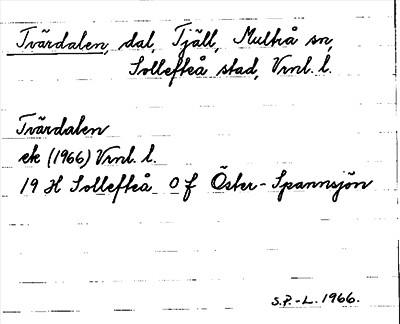 Tvärdalen, dal, Tjäll, Multrå sn,
Sollefteå stad, Vrnl. l.
Tvärdalen
ek (1966) Vrnl. l.
19 H Sollefteå 0 f Öster-Spannsjön
S.P.-L. 1966.